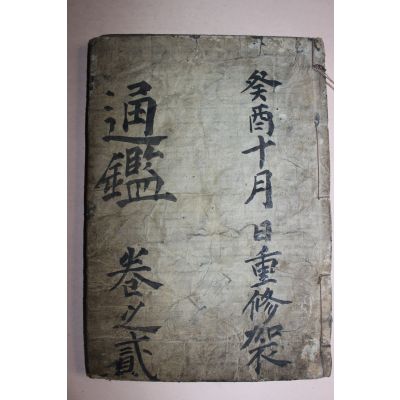 癸酉十月日重修架
通鑑 卷之貳